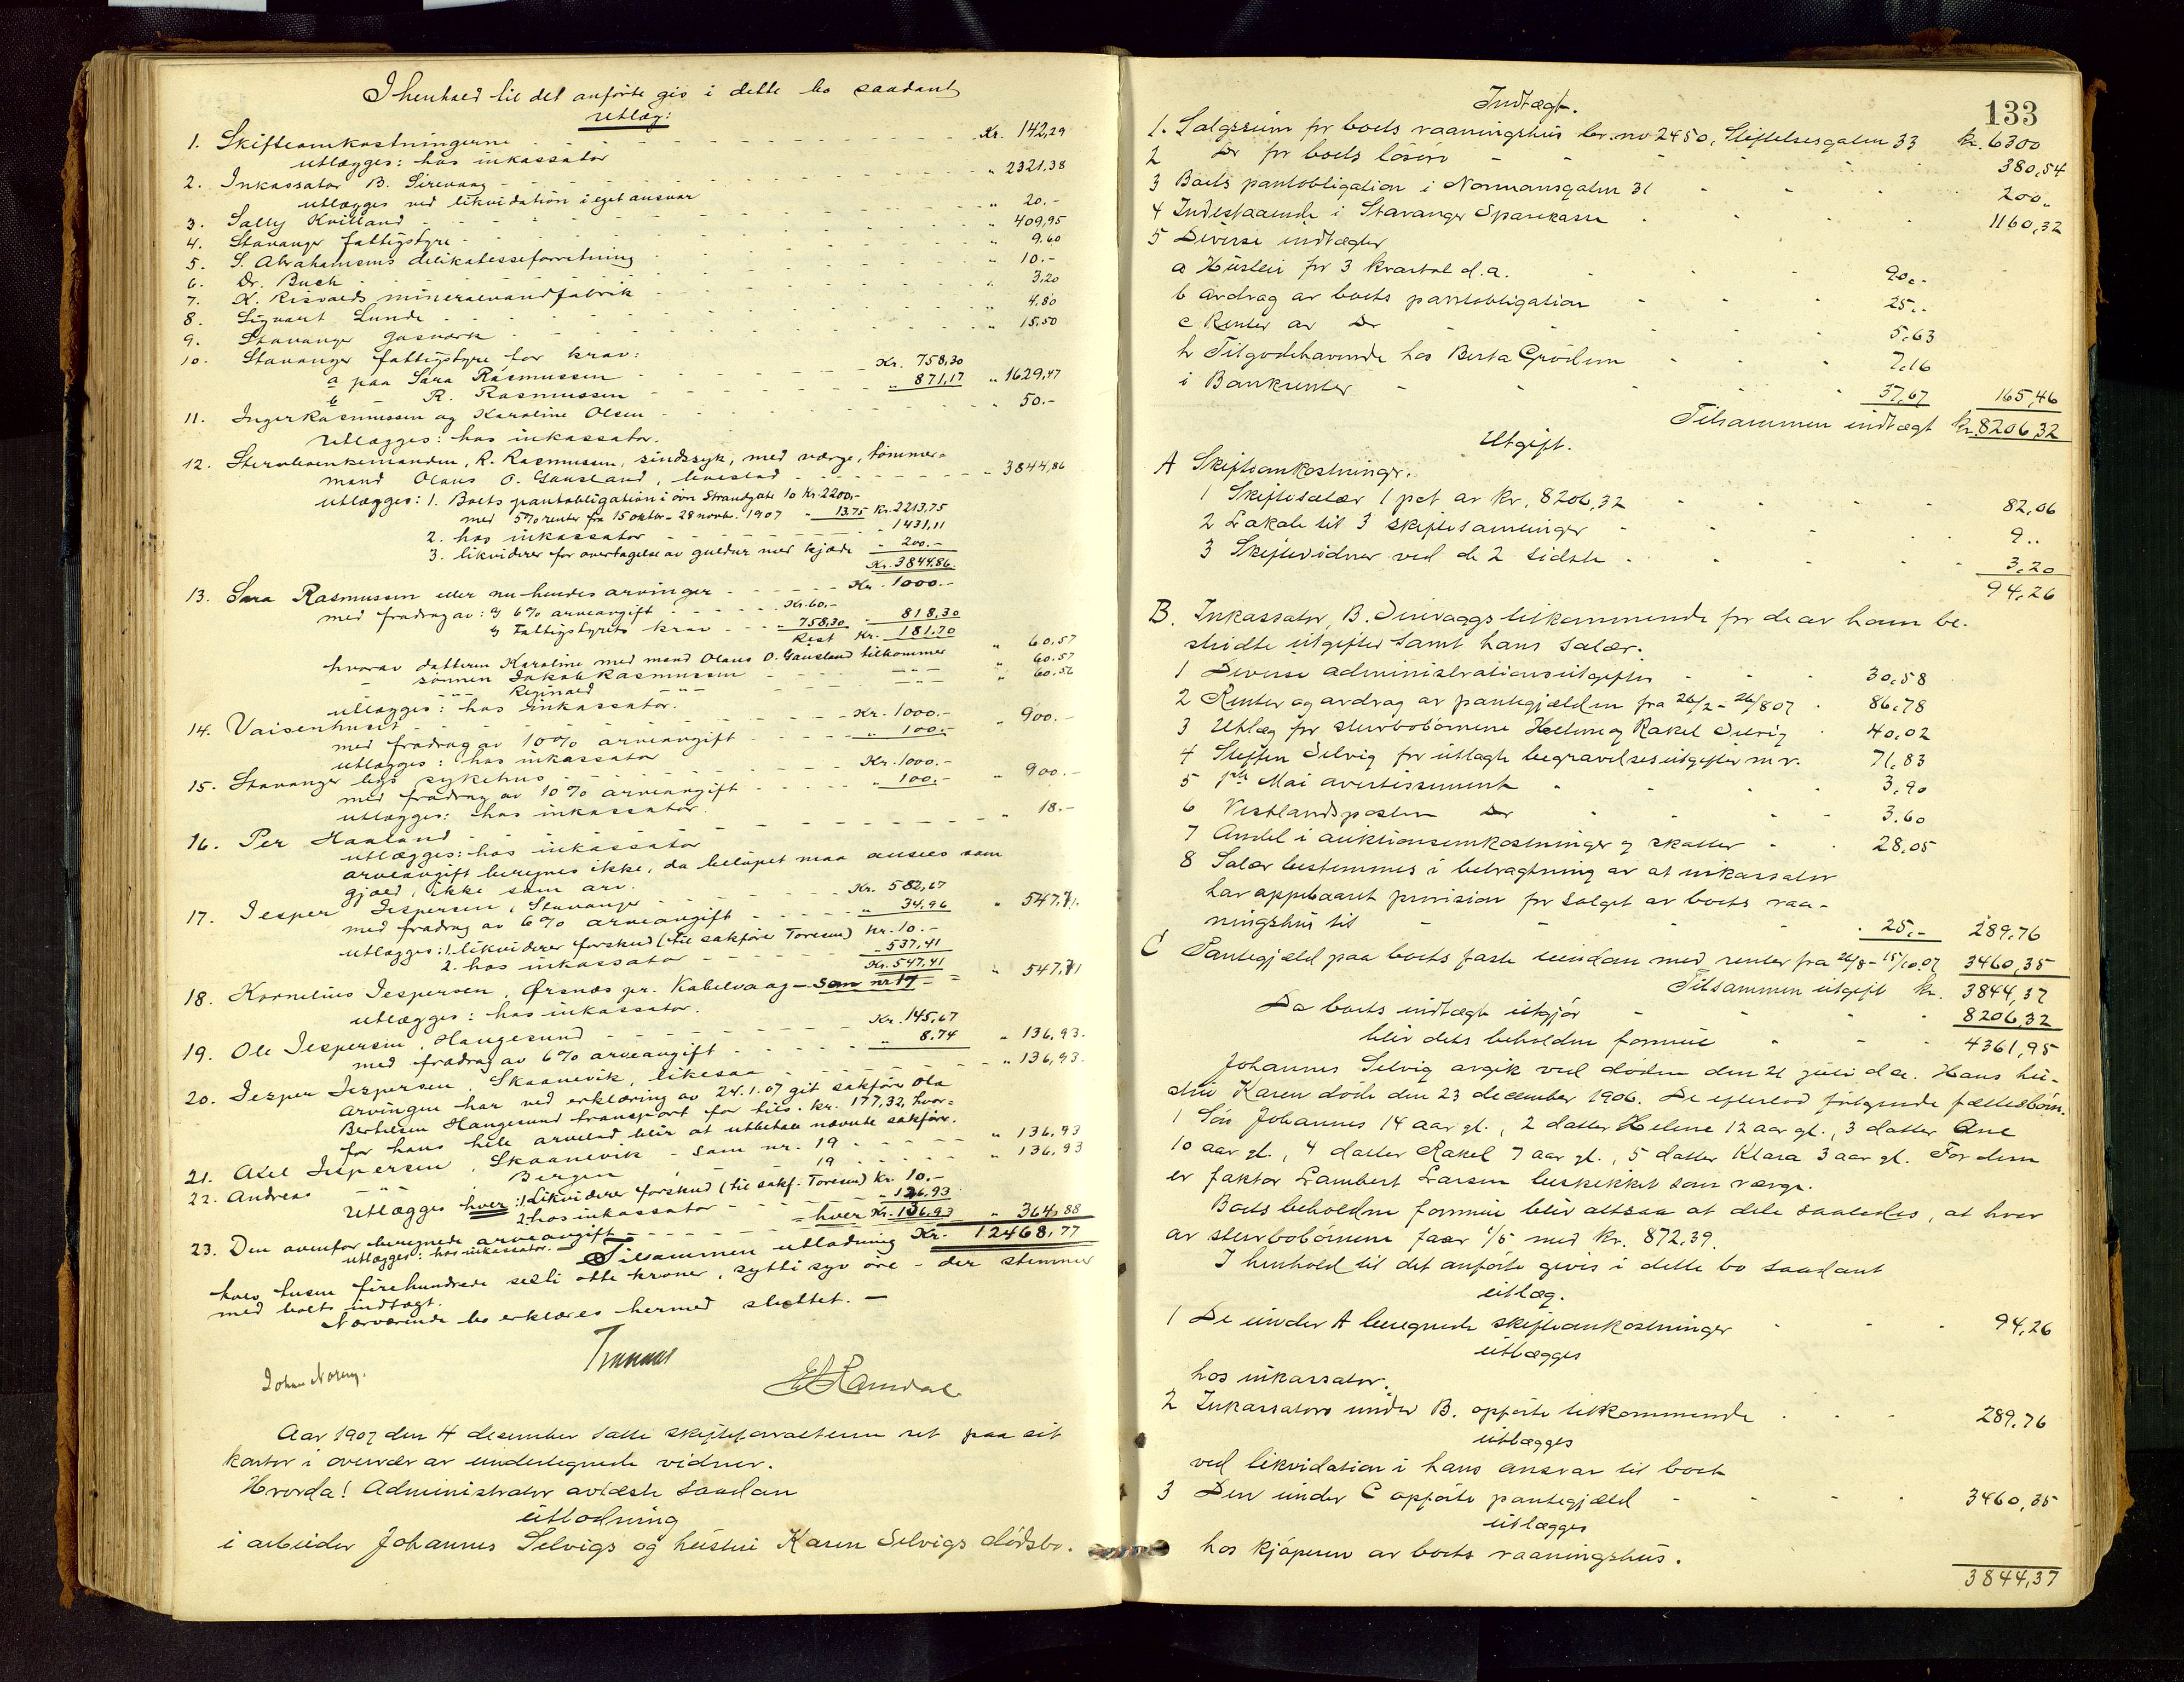 I henhold til det anførte gis i dette bo saadant
utlæg:
1. Skifteomkostningerne - - - Kr. 142,29
utlægges: hos inkassator
2. Inkassator B. Sirevaag - - - " 2321,38
utlægges ved likvidation i eget ansvar
3. Sally Kvilland - - - " 20.-
4. Stavanger fattigstyre - - - " 409,95
5. S. Abrahamsens delikatesseforretning - - - " 9.60
6. Dr. Buch - - - " 10.-
7. K. Risvolds mineralvandfabrik - - - " 3,20
8. Sigvart Lunde - - - " 4,80
9. Stavanger gasverk - - - " 15,50
10. Stavanger fattigstyre for krav:
a paa Sara Rasmussen - - - Kr. 758,30
b - R. Rasmussen - - - " 871,17 " 1629,47
11. Inger Rasmussen og Karoline Olsen - - - " 50.-
utlægges: hos inkassator.
12. Stervboenkemanden, R. Rasmussen, sindssyk, med værge, tømmer-
mand Olaus O. Gausland, - - - " 3844,86
utlægges: 1. Boets pantobligation i øvre Strandgate 10 Kr. 2200,-
med 5% renter fra 15 oktbr - 28 novbr. 1907 " 13.75 Kr. 2213,75
2. hos inkassator - - - " 1431,11
3. likviderer for overtagelse av guldur med kjæde " 200.-
Kr. 3844,86.
13. Sara Rasmussen eller nu hendes arvinger - - - Kr. 1000.-
med fradrag av: a) 6% arveavgift - - - Kr. 60.-
b) Fattigstyrets krav - - - " 758,30 " 818,30
Rest Kr. 181.70
hvorav datteren Karoline med mand Olaus O. Gausland tilkommer " 60,57
- sønnen Jakob Rasmussen - - - " 60.57
- " - Reginald - " - " 60,56
utlægges: hos Inkassator.
14. Vaisenhuset - - - Kr. 1000.-
med fradrag av 10% arveavgift - - - " 100.- " 900.-
utlægges: hos inkassator
15. Stavanger bys sykehus - - - Kr. 1000.-
med fradrag av 10% arveavgift - - - " 100.- " 900.-
utlægges: hos inkassator.
16. Per Haaland - - - " 18.-
utlægges: hos inkassator
arveavgift beregnes ikke, da beløpet maa ansees som
gjæld, ikke som arv.
17. Jesper Jespersen, Stavanger - - - Kr. 582,67
med fradrag av 6% arveavgift - - - " 34.96 " 547,71.
utlægges: 1. likviderer forskud (til sakfører Toresen) Kr. 10.-
2. hos inkassator - - - " 537,41
Kr. 547,41
18. Kornelius Jespersen, Ørsnæs pr. Kabelvaag - Som nr 17 - - " 547.71
utlægges: hos inkassator.
19. Ole Jespersen, Haugesund - - - Kr. 145,67
med fradrag av 6% arveavgift - - - " 8,74 " 136,93.
20. Jesper Jespersen, Skaanevik, likesaa - - - " 136,93.
Arvingen har ved erklæring av 24.1.07 git sakfører Ola
Berthelsen Haugesund transport for tils. kr. 177,32, hvor-
for hans hele arvelod blir at utbetale nævnte sakfører.
21. Axel Jespersen, Skaanevik - som nr. 19 - - - " 136,93
22. Andreas - " - Bergen 19 - - - " 136,93
Utlægges hver: 1. Likviderer forskud (til sakf. Toresen) kr. 10.-
2. hos inkassator - - - " 126,93
hver Kr. 136,93
23. Den ovenfor beregnede arveavgift - - - " 364,88
utlægges: hos inkassator.
Tilsammen utlodning Kr. 12468,77
tolv tusen firehundrede seksti otte kroner, sytti syv øre - der stemmer
med boets indtægt.
Nærværende bo erklæres hermed sluttet. -
Johan Noreng.
Aar 1907 den 4 desember satte skifteforvalteren ret paa sit
kontor i overvær av undertegnede vidner.
Hvorda! Administrator avlæste saadan
utlodning
i arbeider Johannes Selvigs og hustru Karen Selvigs dødsbo.
133
Indtægt.
1. Salgssum for boets vaaningshus br. no 2450, Stiftelsesgaten 33 kr. 6300
2 Do for boets løsøre - - - 380,54
3 Boets pantobligation i Normansgaten 31 - - - 200,,
4 Indestaaende i Stavanger Sparekasse - - - 1160,32
5 Diverse indtægter
a Husleie for 3 kvartal d.a. - - - 90,-
b avdrag av boets pantobligation - - - 25,-
c Renter av Do - - - 5,63
h Tilgodehavende hos Berta Grødem - - - 7,16
i Bankrenter - - - 37,67 165,46
Tilsammen indtægt kr. 8206,32
Utgift.
A Skifteomkostninger.
1 Skiftesalær 1 pct av kr. 8206,32 - - - 82,06
2 Lokale til 3 skiftesamlinger - - - 9..
3 Skiftevidner ved de 2 sidste - - - 3,20
94,26
B. Inkassator, B. Sirevaags tilkommende for de av ham be-
stridte utgifter samt hans salær.
1 Diverse administrationsutgifter - - - 30,58
2 Renter og avdrag av pantegjælden fra 26/2 - 26/8 07 - 86,78
3 Utlæg for stervbobørnene Helene og Rakel Selvig - 40,02
4 Steffen Selvig for utlagte begravelsesutgifter m.v. 71,83
5 1ste Mai avertissement - - - 3,90
6 Vestlandsposten Do - - - 3.60
7 Andel i auktionsomkostninger og skatter - - 28,05
8 Salær bestemmes i betragtning av at inkassator
har oppebaaret provision for salget av boets vaa-
ningshus til - - - 25,- 289,76
C Pantegjæld paa boets faste eiendom med renter fra 26/8 - 15/10.07 3460,35
Tilsammen utgift kr. 3844,37
Da boets indtægt utgjør - - - 8206,32
blir dets beholdne formue - - 4361,95
Johannes Selvig avgik ved døden den 21 juli d.a. Hans hu-
stru Karen døde den 23 december 1906. De efterlod følgende fællesbørn.
1 Søn Johannes 14 aar gl., 2 datter Helene 12 aar gl., 3 datter Ane
10 aar gl., 4 datter Rakel 7 aar gl., 5 datter Klara 3 aar gl. For dem
er faktor Lambert Larsen beskikket som værge.
Boets beholdne formue blir altsaa at dele saaledes, at hver
av stervbobørnene faar 1/5 med kr. 872,39.
I henhold til det anførte givis i dette bo saadant
utlæg.
1 De under A beregnede skifteomkostninger - - - 94,26
utlægges
hos inkassator.
2 Inkassators under B. opførte tilkommende - - - 289,76
utlægges
ved likvidation i hans ansvar til boet
3 Den under C opførte pantegjæld - - - 3460,35
utlægges
hos kjøperen av boets vaaningshus.
3844,37